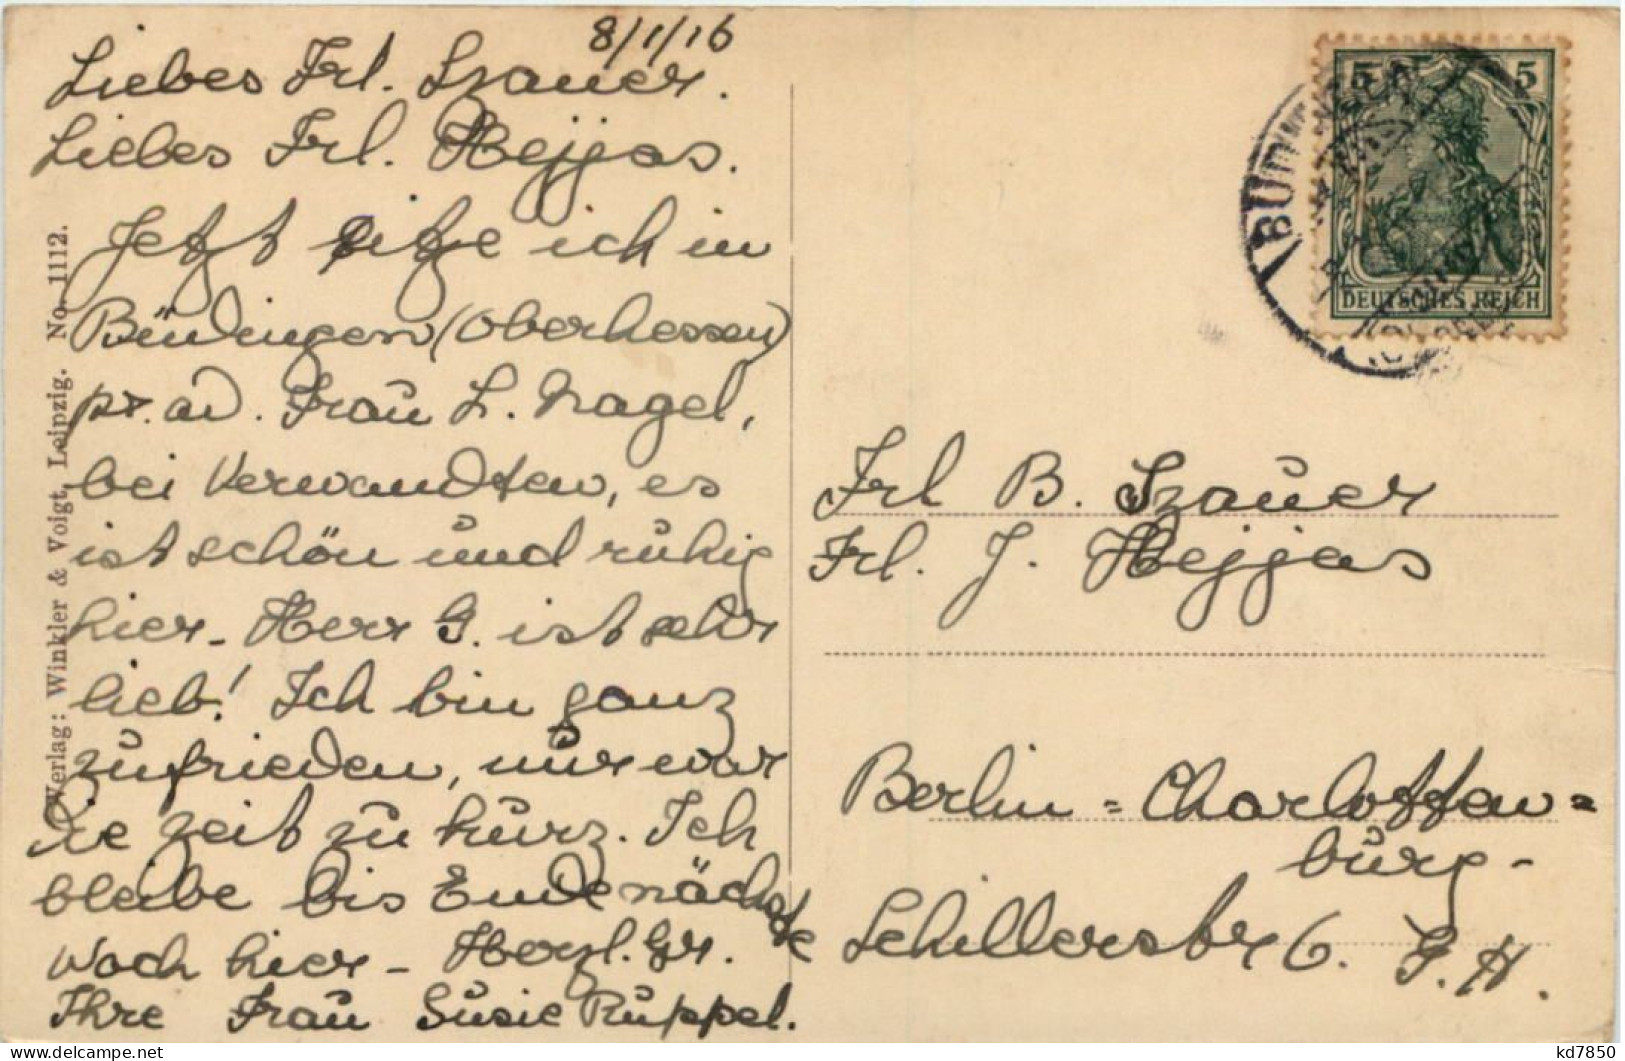 8/1/16
Liebes Frl. Szauer.
Liebes Frl. Hejjas.
Jetzt sitze ich in
Büdingen (Oberhessen)
pr. ad. Frau L. Nagel,
bei Verwandten, es
ist schön und ruhig
hier - Herr G. ist sehr
lieb! Ich bin ganz
zufrieden, nur war
die Zeit zu kurz. Ich
bleibe bis Ende nächste
Woch hier - Herzl. Gr.
Ihre Frau Susie Ruppel.
Verlag: Winkler & Voigt, Leipzig. No. 1112.
5 5
DEUTSCHES REICH
Frl B. Szauer
Frl. J. Hejjas
Berlin = Charlotten=
burg-
Schillerstr 6. G.H.
kd7850